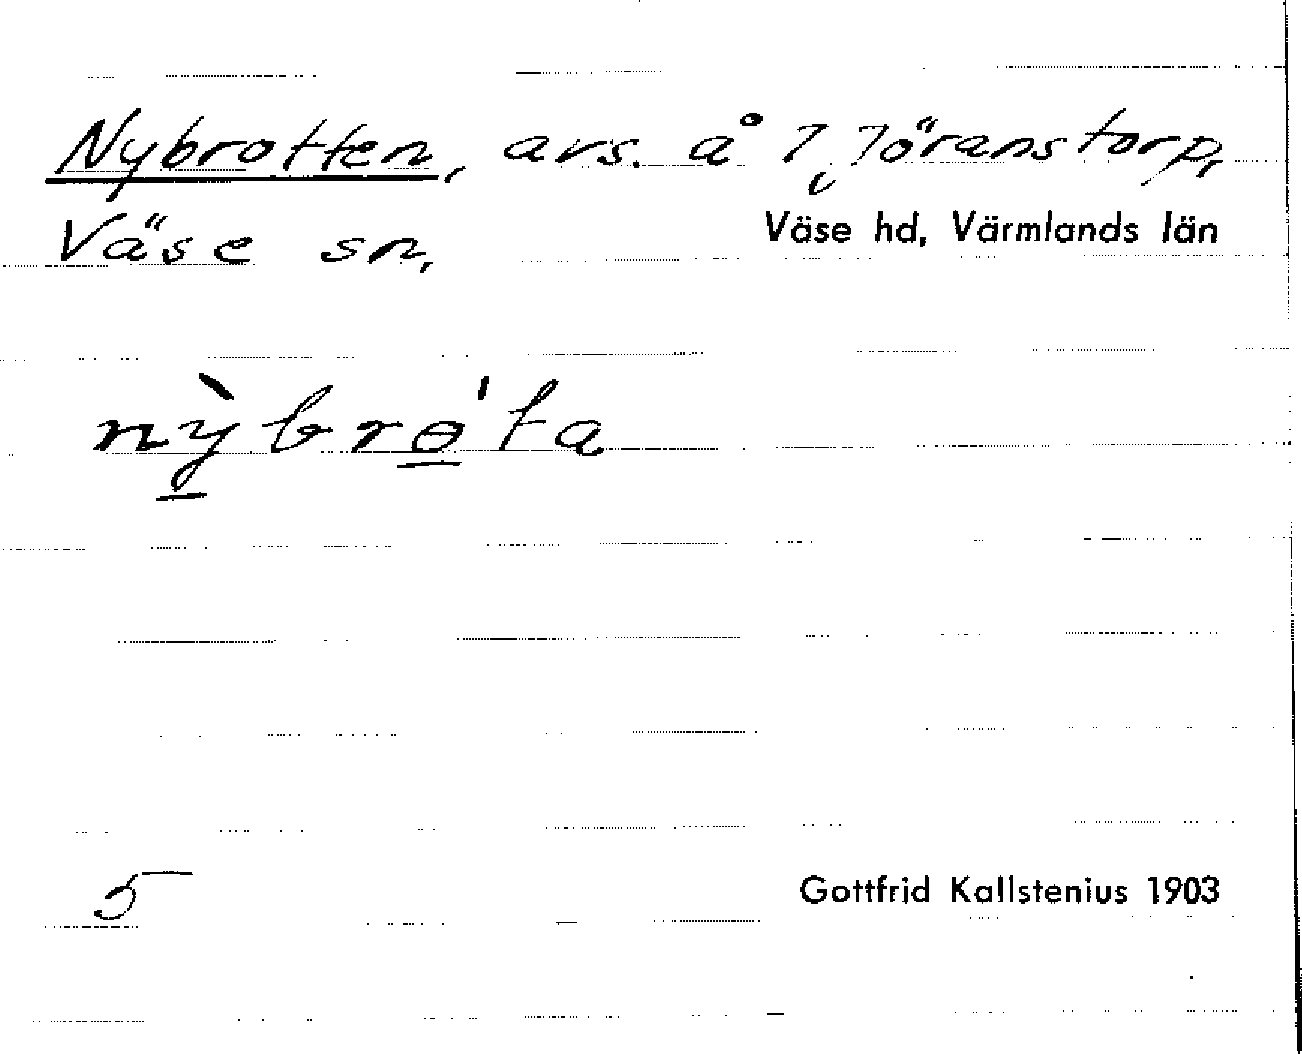 Nybrotten, avs. å 7, Jöranstorp,
Väse sn, Väse hd, Värmlands län
nỳbrɵ'ta
5
Gottfrid Kallstenius 1903